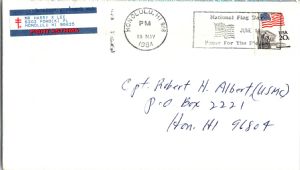 MR HARRY X LEE
HONOLULU HI 96815
HONOLULU, HI
PM
15 MAY
1984
National Flag Day
JUNE 14
Pause For The Pledge
USA
20c
Cpt. Robert H. Albert (USMC)
P-O Box 2221
Hon. HI 96804